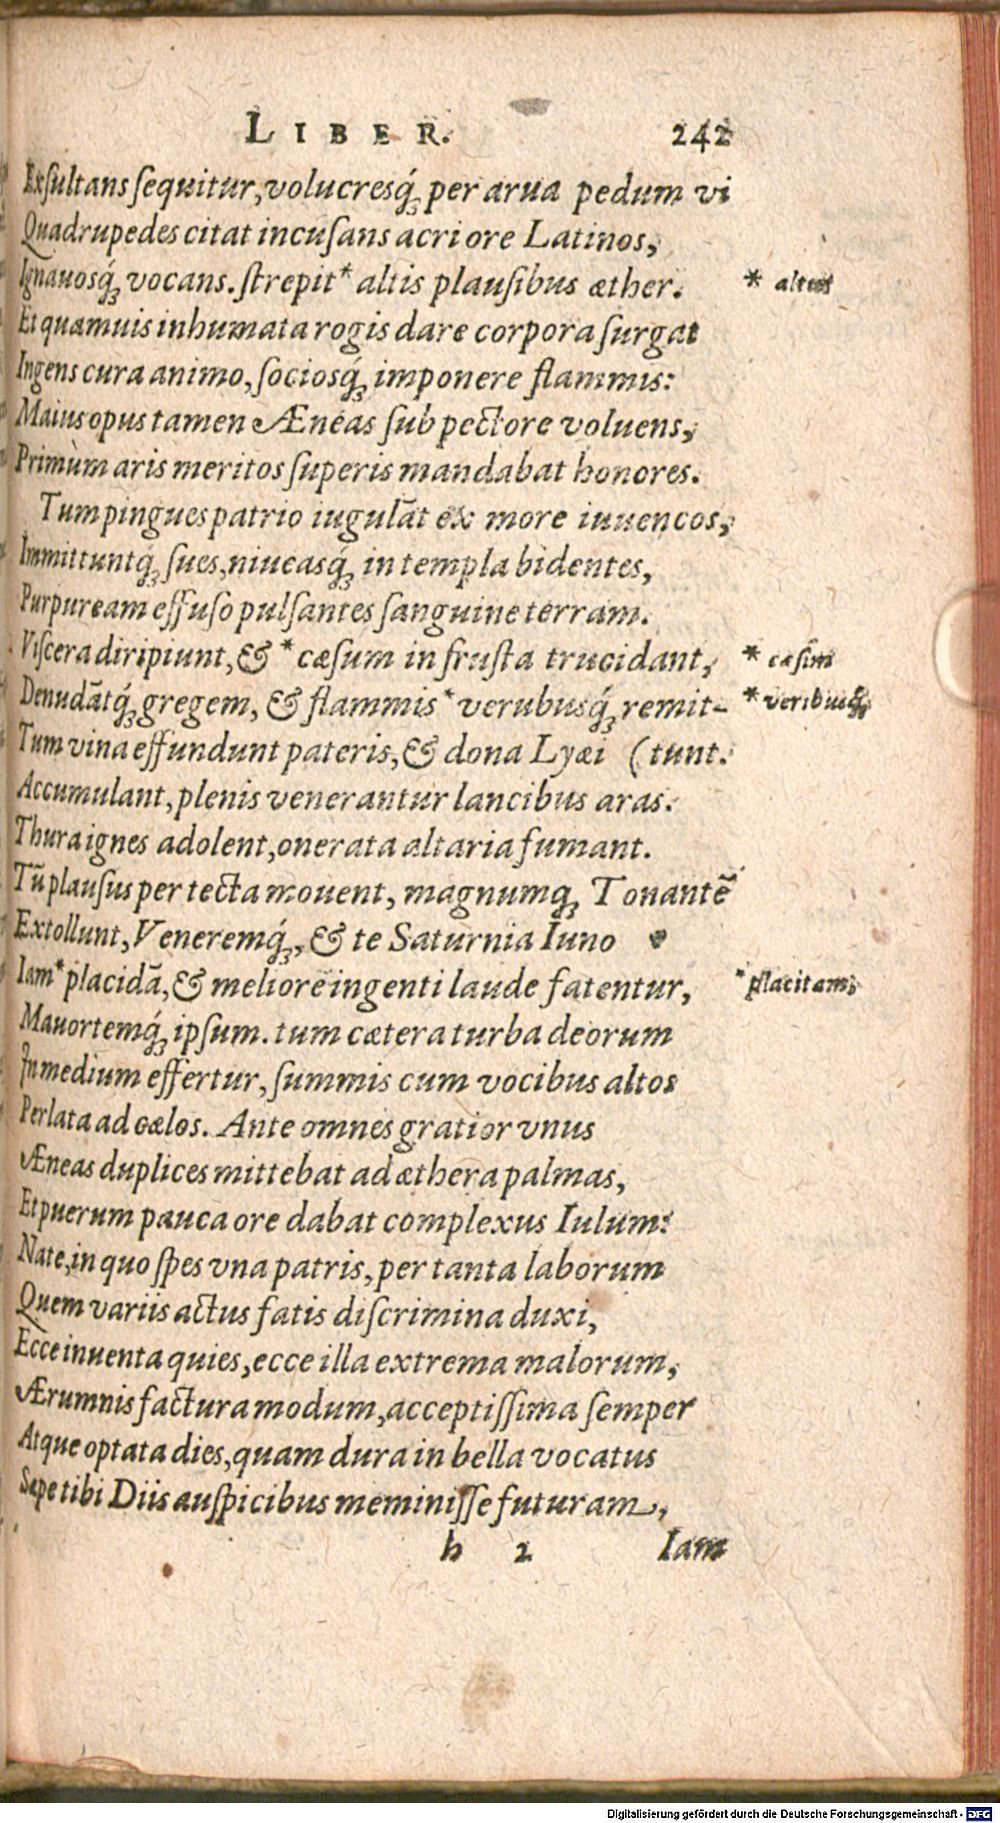 LIBER. 242
Exſultans ſequitur, volucresq́ꝫ per arua pedum vi
Quadrupedes citat incuſans acri ore Latinos,
Ignauosq́ꝫ vocans. ſtrepit * altis plauſibus æther. * altus
Et quamuis inhumata rogis dare corpora ſurgat
Ingens cura animo, ſociosq́ꝫ imponere flammis:
Maius opus tamen Æneas ſub pectore voluens,
Primùm aris meritos ſuperis mandabat honores.
Tum pingues patrio iugulãt ex more iuuencos,
Immittuntq́ꝫ ſues, niueasq́ꝫ in templa bidentes,
Purpuream effuſo pulſantes ſanguine terram.
Viſcera diripiunt, & * cæſum in fruſta trucidant, * cæſim
Denudãtq́ꝫ gregem, & flammis * verubusq́ꝫ remit- * veribusq́ꝫ
Tum vina effundunt pateris, & dona Lyæi (tunt.
Accumulant, plenis venerantur lancibus aras.
Thura ignes adolent, onerata altaria fumant.
Tũ plauſus per tecta mouent, magnumqꝫ Tonantẽ
Extollunt, Veneremq́ꝫ, & te Saturnia Iuno
Iam * placidã, & meliorẽ ingenti laude fatentur, * placitam,
Mauortemq́ꝫ ipſum. tum cætera turba deorum
In medium effertur, ſummis cum vocibus altos
Perlata ad cælos. Ante omnes gratior vnus
Æneas duplices mittebat ad æthera palmas,
Et puerum pauca ore dabat complexus Iulum:
Nate, in quo ſpes vna patris, per tanta laborum
Quem variis actus fatis diſcrimina duxi,
Ecce inuenta quies, ecce illa extrema malorum,
Ærumnis factura modum, acceptiſſima ſemper
Atque optata dies, quam dura in bella vocatus
Sæpe tibi Diis auſpicibus meminiſſe futuram,
h 2 Iam
Digitalisierung gefördert durch die Deutsche Forschungsgemeinschaft - DFG